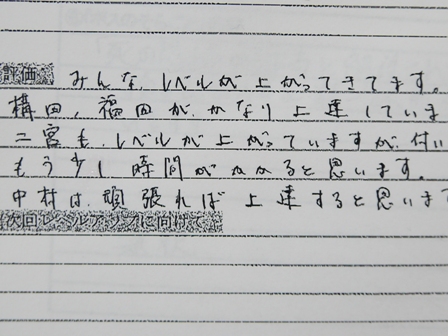 評価 みんな、レベルが上がってきてます。
構田、福田が、かなり上達していま
二宮も、レベルが上がっていますが、付い
もう少し時間がかかると思います。
中村は、頑張れば上達すると思いま
次回レベルアップに向けて